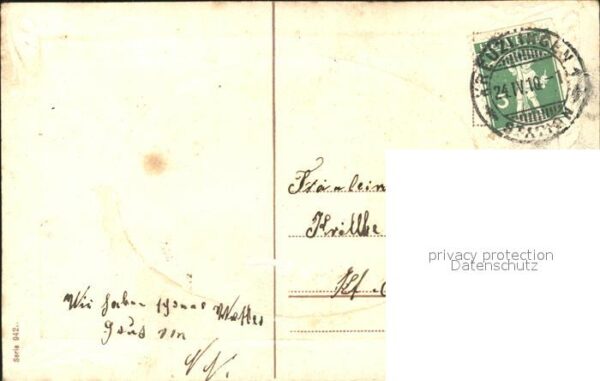 KREUZLINGEN 1
24.IV.10.-1
STATION
5
Fräulein
privacy protection
Datenschutz
Wir haben schönes Wetter
Gruss von
Serie 942.